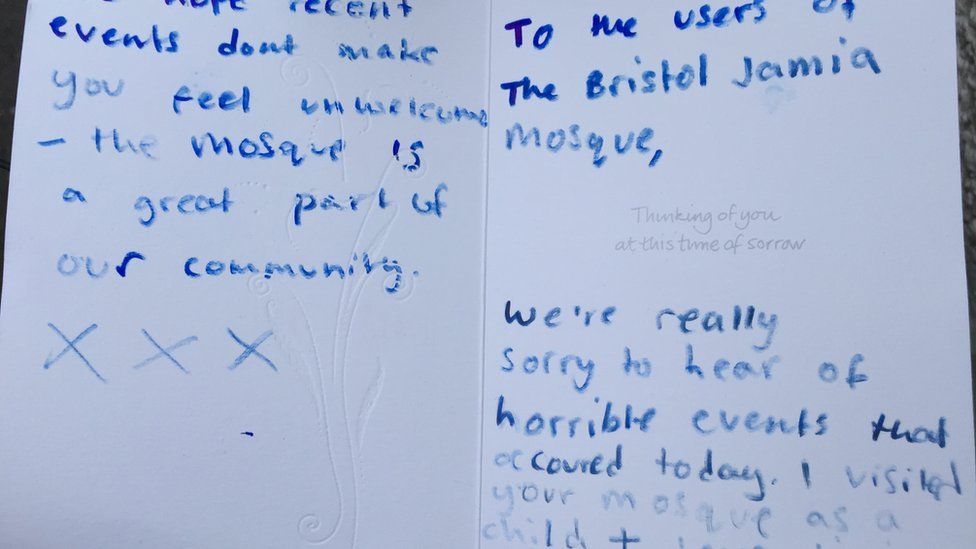 hope recent
events dont make
you feel unwelcome
- the mosque is
a great part of
our community.
X X X
To the users of
The Bristol Jamia
mosque,
Thinking of you
at this time of sorrow
We're really
sorry to hear of
horrible events that
occoured today. I visited
your mosque as a
child +